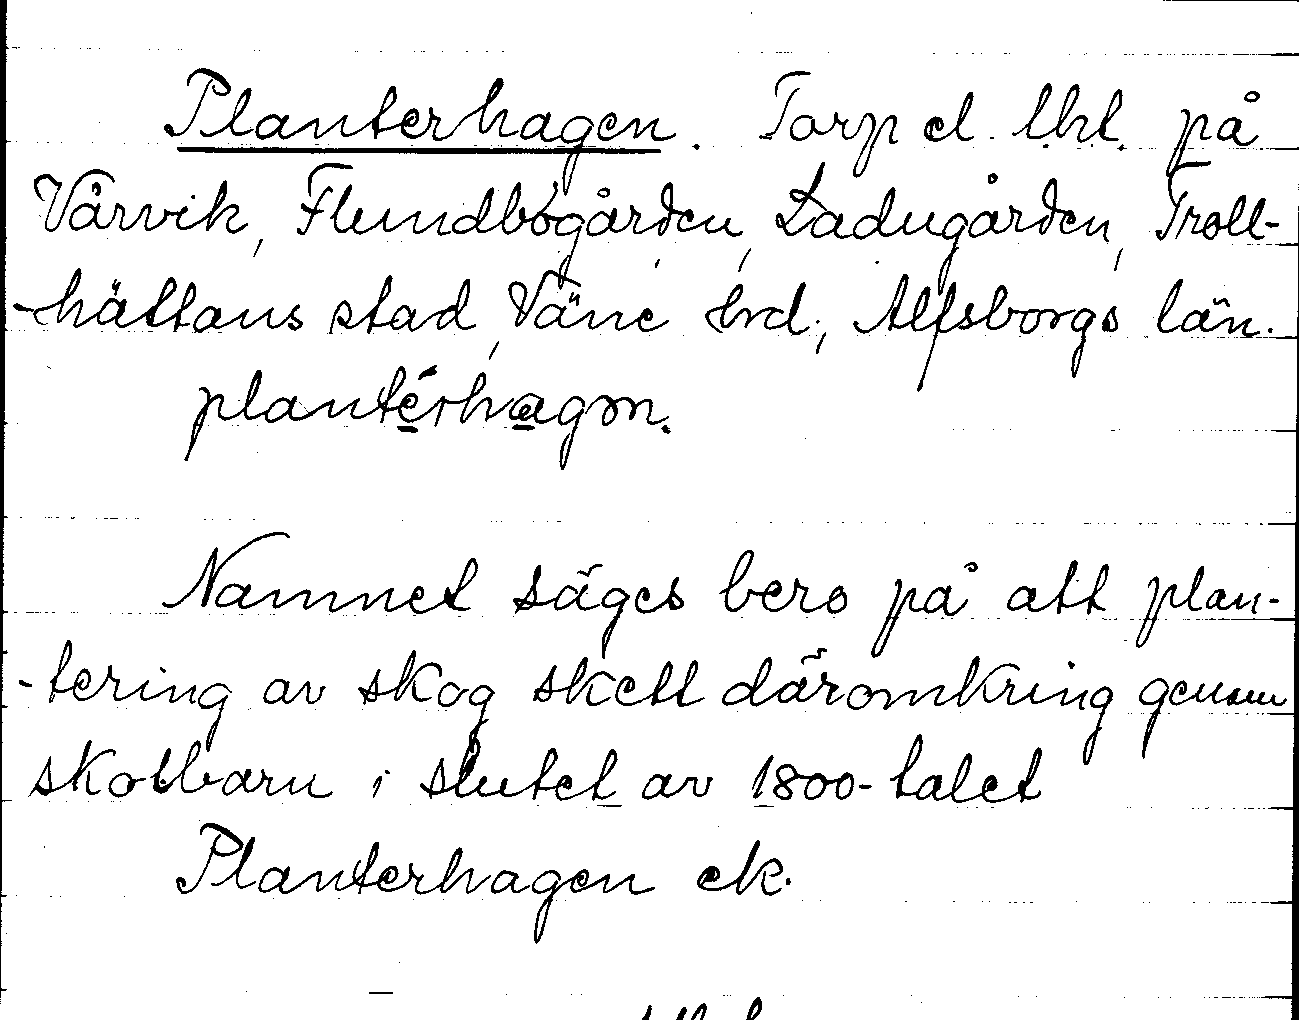 Planterhagen. Torp el. lht. på
Vårvik, Flundbogården, Ladugården, Troll-
-hättans stad, Väne hrd., Älfsborgs län.
plantérhagɷn.
Namnet säges bero på att plan-
-tering av skog skett däromkring genom
skolbarn i slutet av 1800-talet
Planterhagen ek.